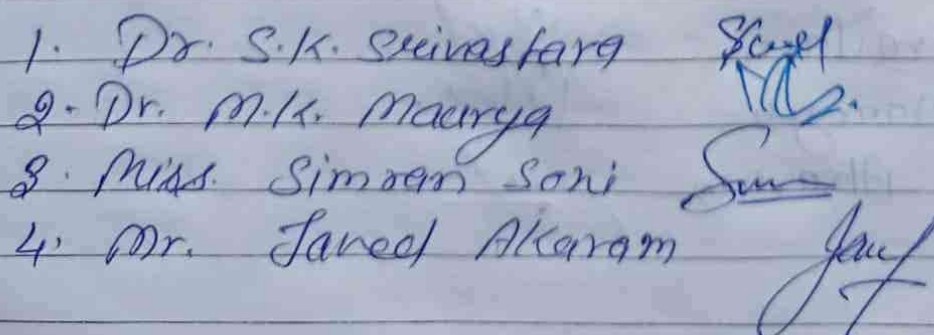 1. Dr. S.K. Srivastava
2. Dr. M.K. Maurya
3. Miss. Simran Soni
4. Mr. Javed Akaram